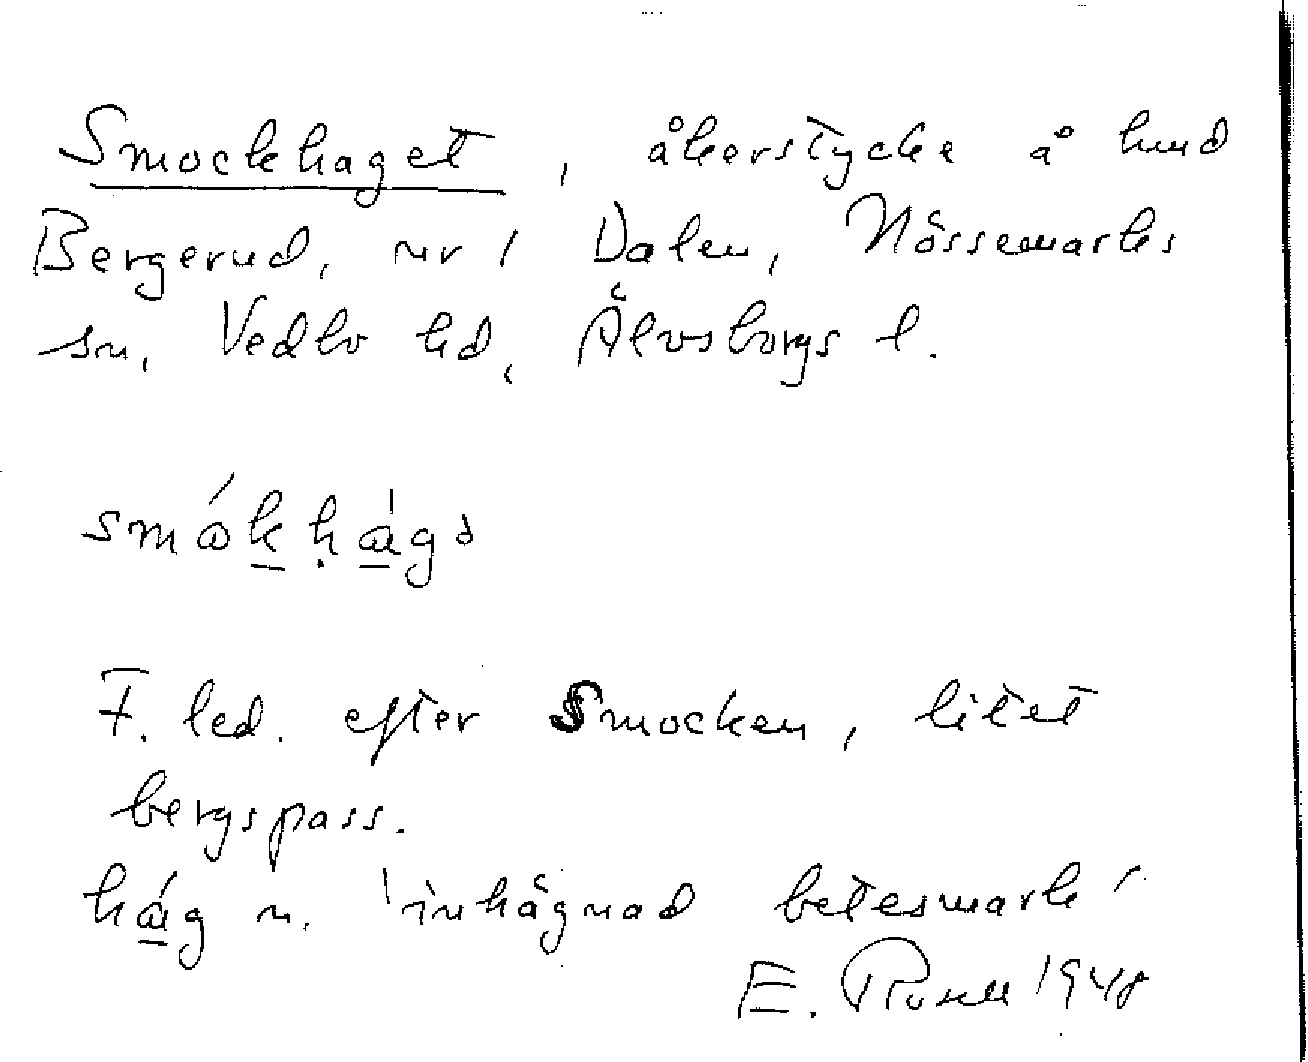 Smockhaget, åkerstycke å hmd
Bergerud, nr 1 Dalen, Nössemarks
sn, Vedbo hd, Älvsborgs l.
smókhágə
F. led. efter Smocken, litet
bergspass.
hág n. 'inhägnad betesmark'
E. Rosell 1948